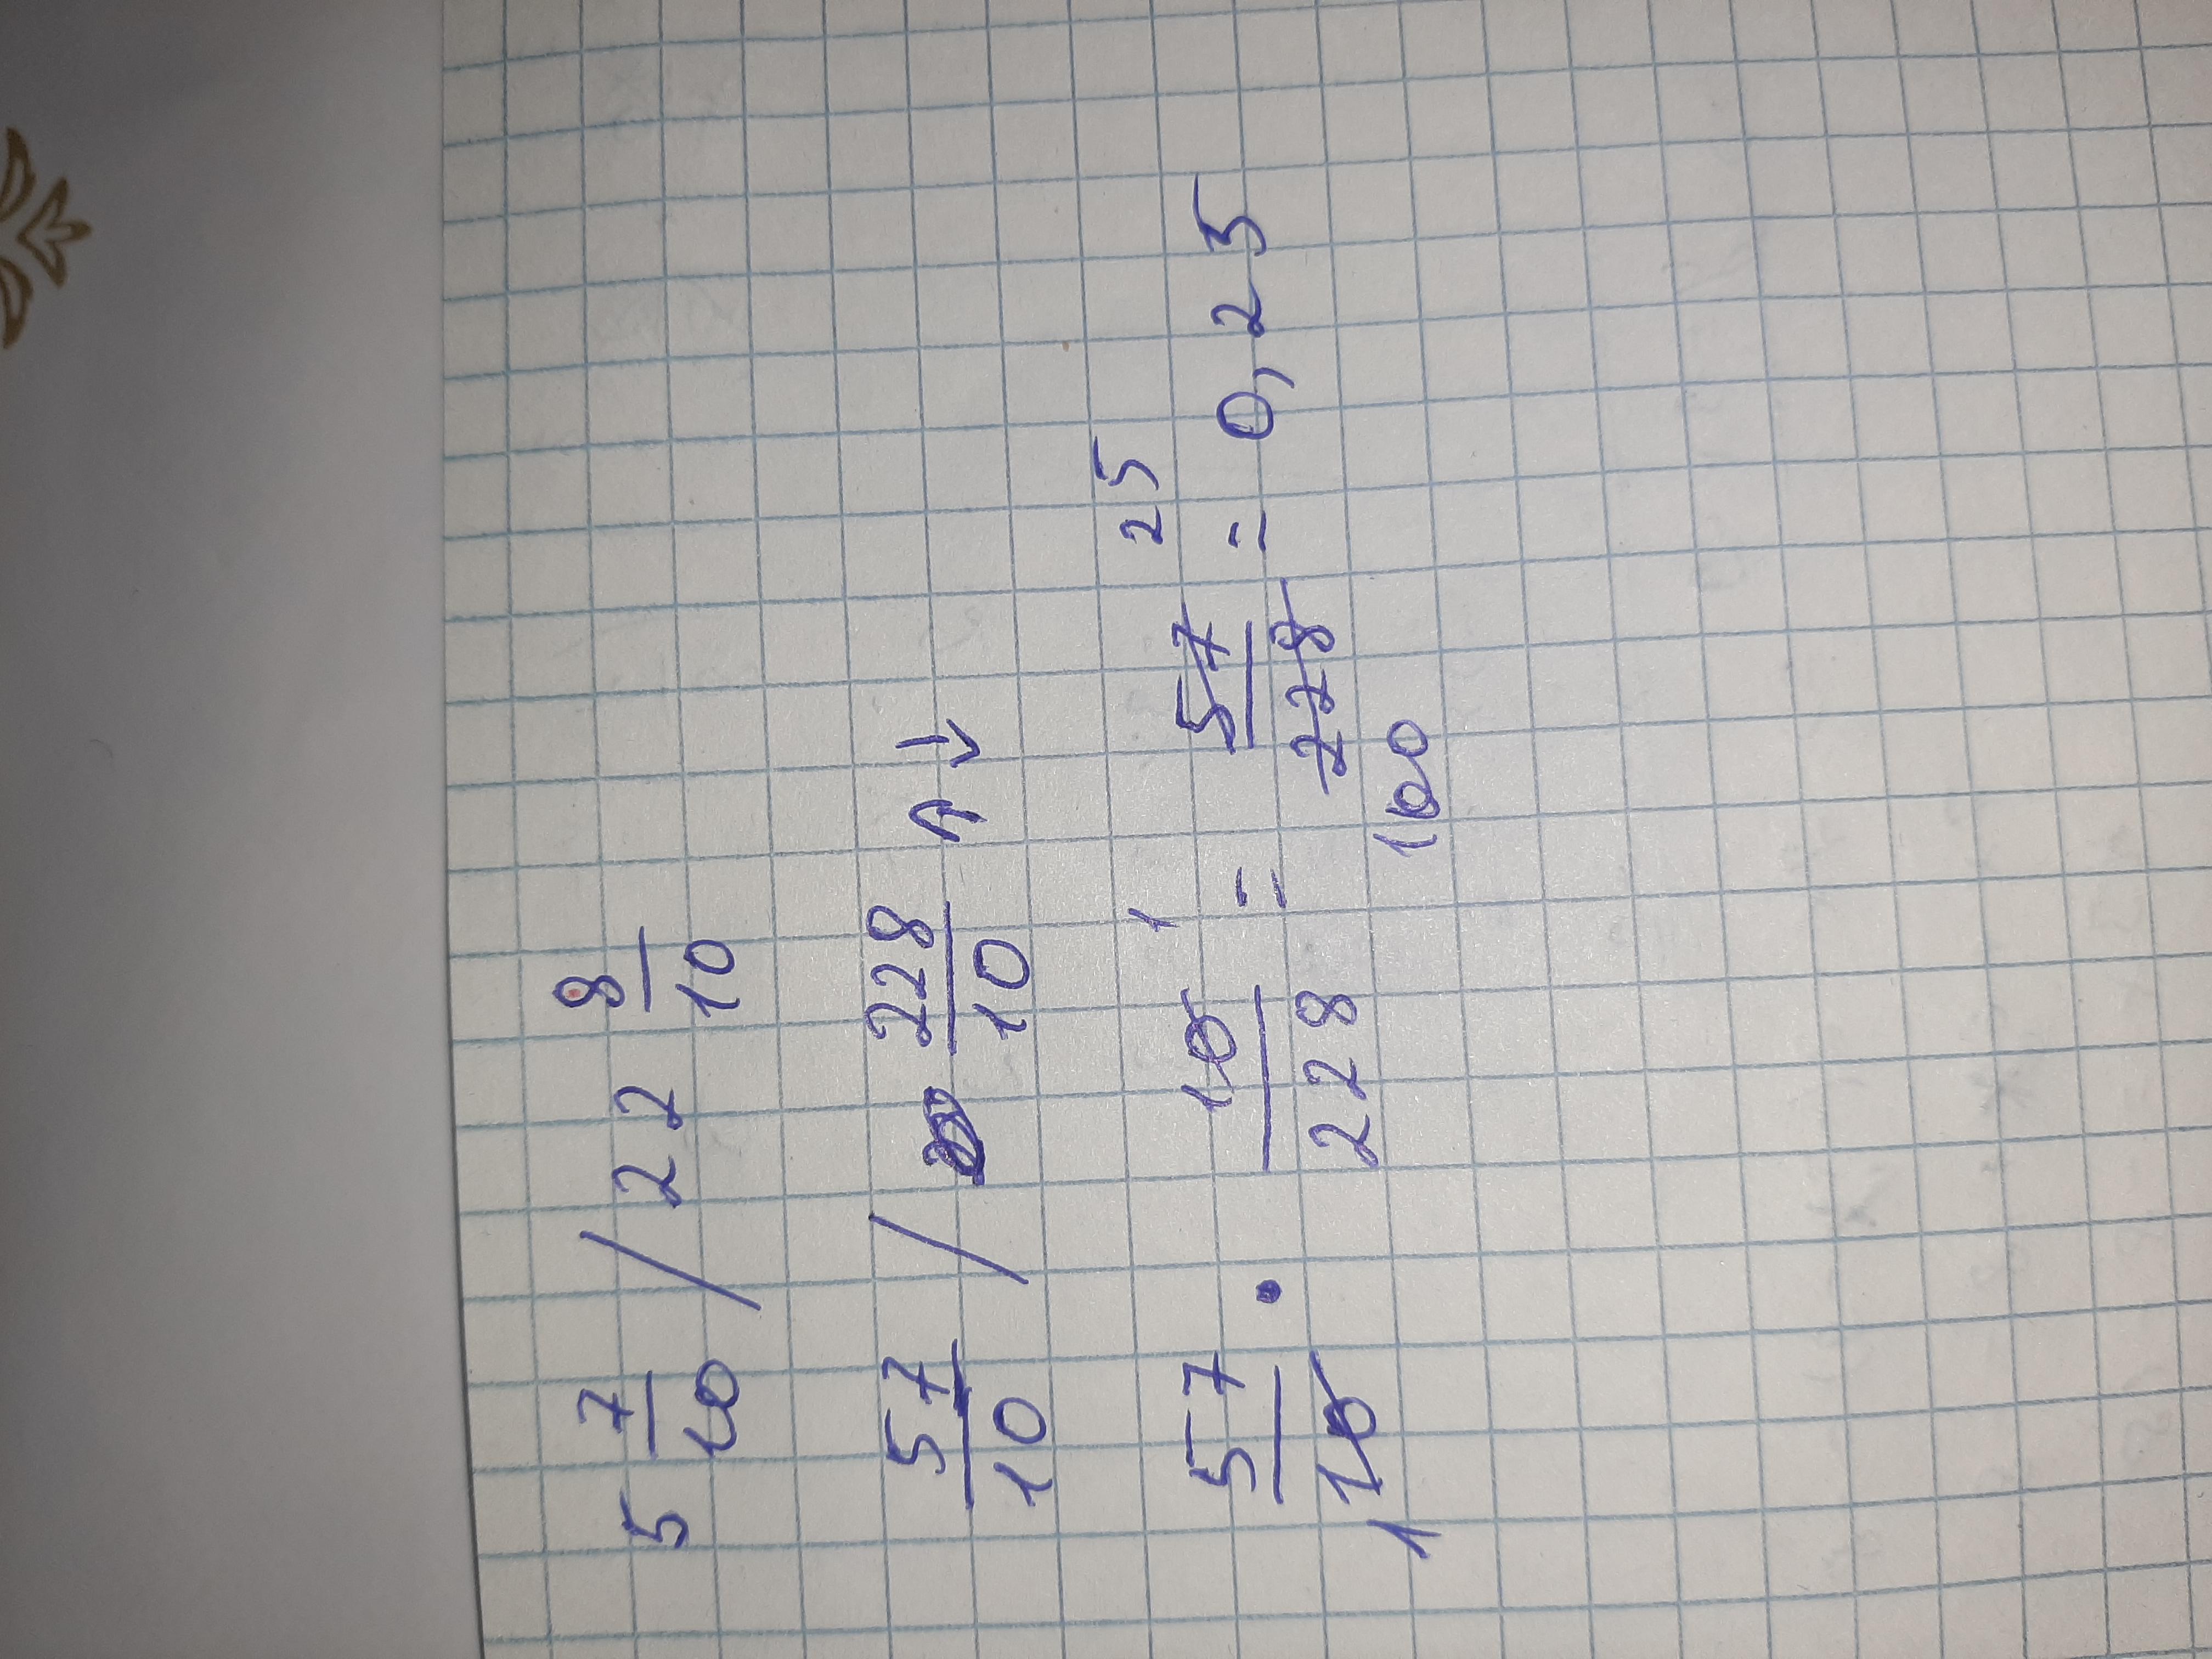 5 7/10 / 22 8/10
57/10 / 228/10 ↑ ↓
57/10 1 · 10/228 1 = 57/228 25/100 = 0,25